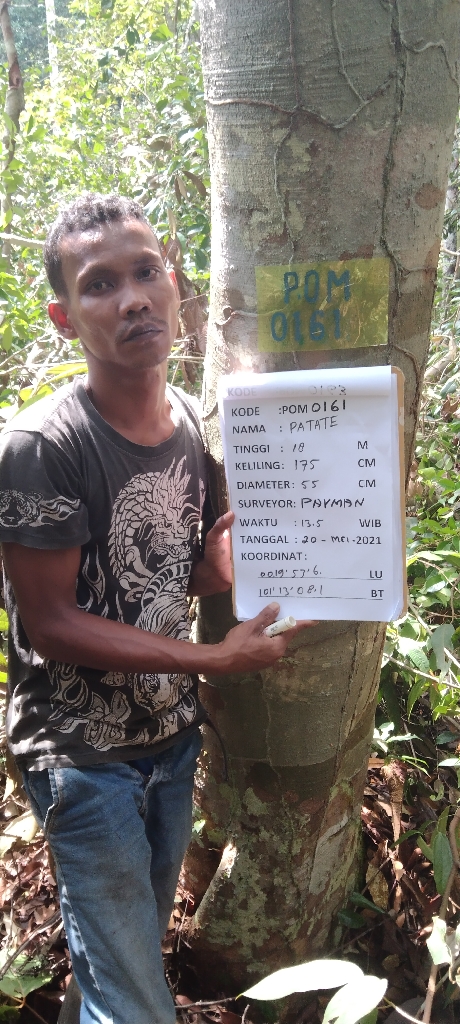 POM
0161
KODE : POM 0161
NAMA : PATATE
TINGGI : 18 M
KELILING : 175 CM
DIAMETER : 55 CM
SURVEYOR : PAYMAN
WAKTU : 13.5 WIB
TANGGAL : 20 - MEI - 2021
KOORDINAT :
00.19'57'6. LU
101'13'08.1 BT